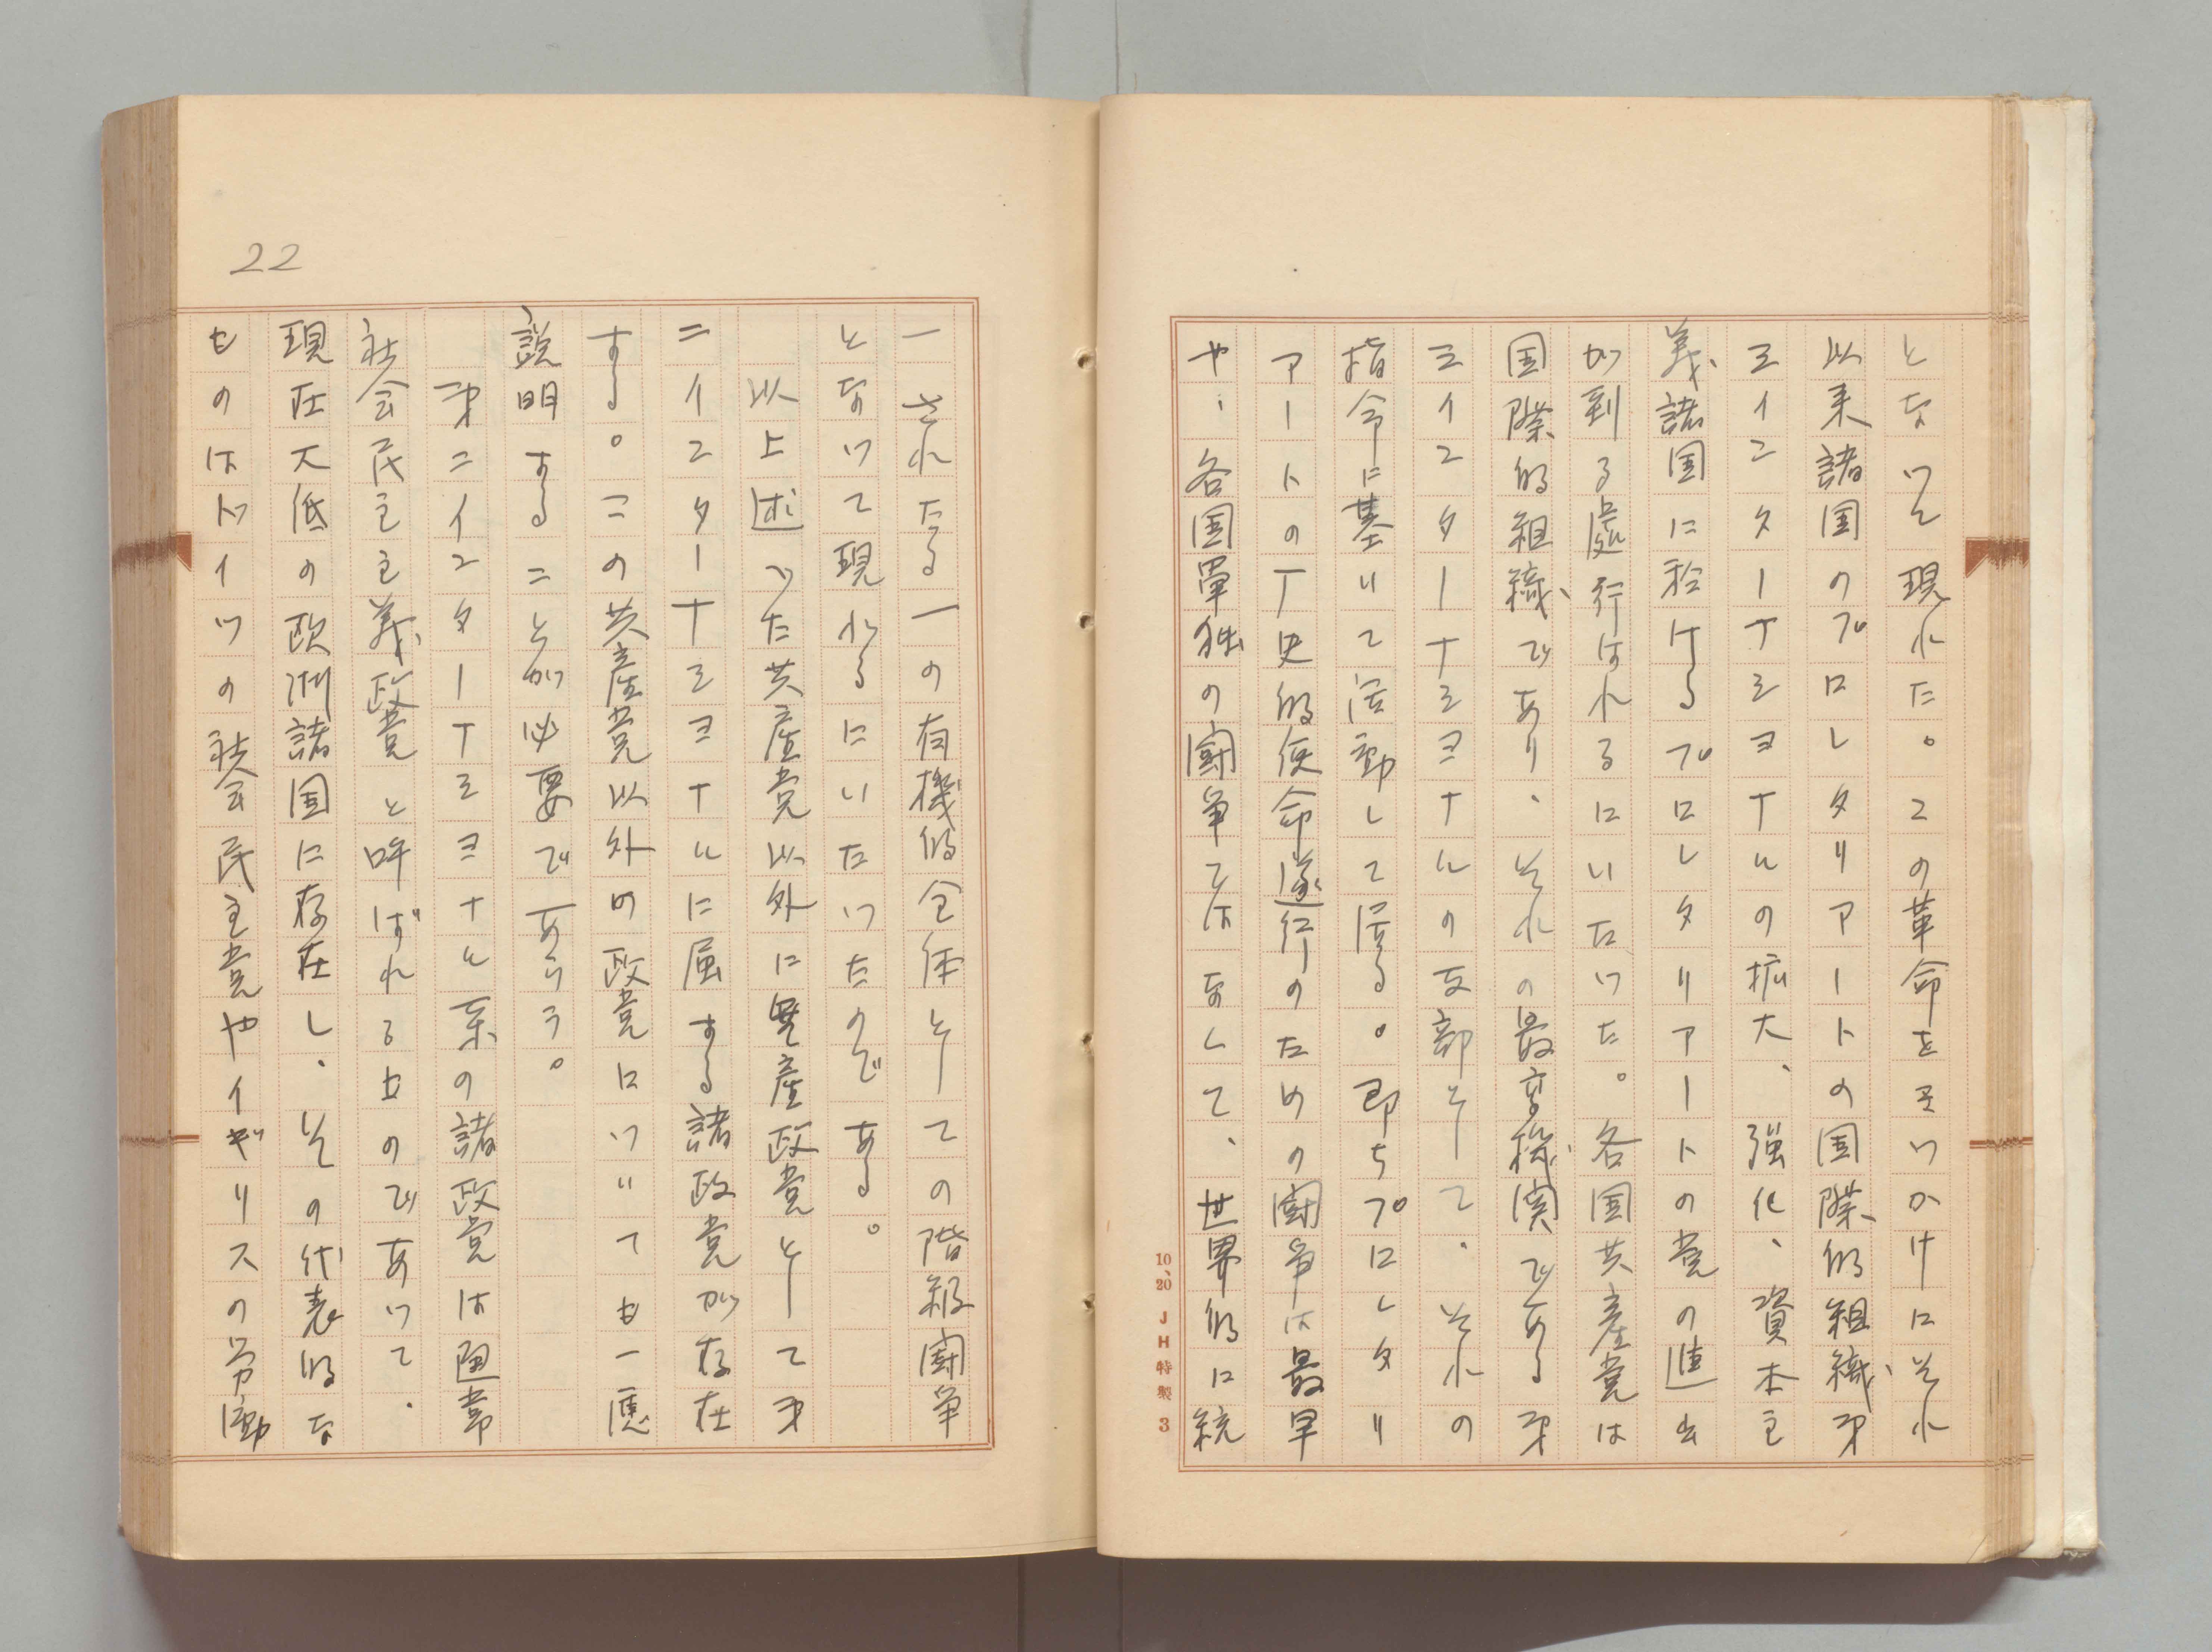 となつて現れた。この革命をきつかけにそれ
以来諸国のプロレタリアートの国際的組織、才
三インターナショナルの拡大、強化、資本主
義諸国に於けるプロレタリアートの党の進出
が到る處行はれるにいたつた。各国共産党は
国際的組織であり、それの最高機関である才
三インターナショナルの支部として、それの
指令に基いて活動して居る。即ちプロレタリ
アートの丁史的使命遂行のための闘争は最早
や、各国単独の闘争ではなくて、世界的に統
10、20 JH特製 3
22
一されたる一の有機的全体としての階級闘争
となつて現れるにいたつたのである。
以上述べた共産党以外に無産政党として才
二インターナショナルに属する諸政党が存在
する。この共産党以外の政党についても一應
説明することが必要であらう。
才二インターナショナル系の諸政党は通常
社会民主主義政党と呼ばれるものであつて、
現在大低の欧洲諸国に存在し、その代表的な
ものはドイツの社会民主党やイギリスの労働